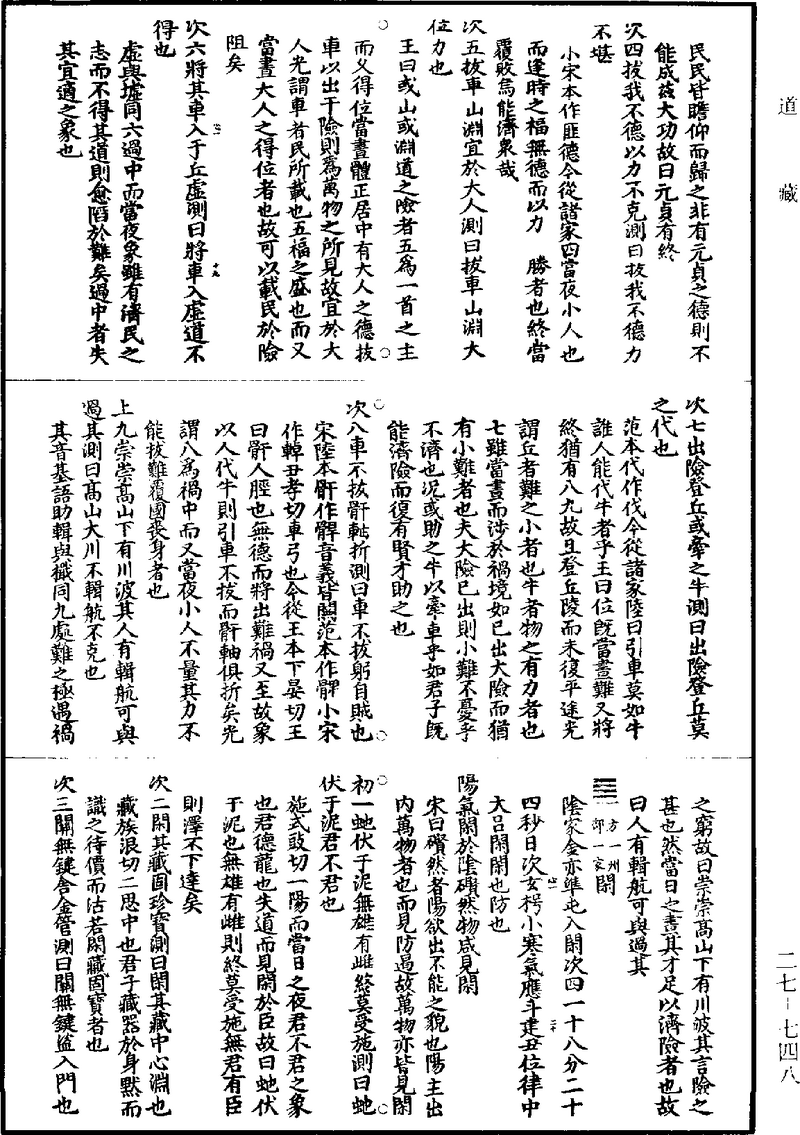 道藏
民民皆瞻仰而歸之非有元貞之德則不
能成茲大功故曰元貞有終
次四拔我不德以力不克測曰拔我不德力
不堪
小宋本作匪德今從諸家四當夜小人也
而逢時之福無德而以力 勝者也終當
覆敗烏能濟衆哉
次五拔車山淵宜於大人測曰拔車山淵大
位力也
王曰或山或淵道之險者五為一首之主
而又得位當晝體正居中有大人之德拔
車以出于險則為萬物之所見故宜於大
人光謂車者民所載也五福之盛也而又
當晝大人之得位者也故可以載民於險
阻矣
次六將其車入于丘虛測曰將車入虛道不
得也
虛與墟同六過中而當夜象雖有濟民之
志而不得其道則愈陷於難矣過中者失
其宜適之象也
次七出險登丘或牽之牛測曰出險登丘莫
之代也
范本代作伐今從諸家陸曰引車莫如牛
誰人能代牛者乎王曰位旣當晝難又將
終猶有八九故且登丘陵而未復平途光
謂丘者難之小者也牛者物之有力者也
七雖當晝而涉於禍境如已出大險而猶
有小難者也夫大險已出則小難不憂乎
不濟也況或助之牛以牽車乎如君子旣
能濟險而復有賢才助之也
次八車不拔骭軸折測曰車不拔躬自賊也
宋陸本骭作髀音義皆闕范本作髀小宋
作䡞丑孝切車弓也今從王本下晏切王
曰骭人脛也無德而將出難禍又至故象
以人代牛則引車不拔而骭軸俱折矣光
謂八為禍中而又當夜小人不量其力不
能拔難覆國喪身者也
上九崇崇高山下有川波其人有輯航可與
過其測曰高山大川不輯航不克也
其音基語助輯與檝同九處難之極遇禍
之窮故曰崇崇高山下有川波其言險之
甚也然當日之晝其才足以濟險者也故
曰人有輯航可與過其
一方一州
一部一家
閑
陰家金亦準屯入閑次四一十八分二十
四秒日次女枵小寒氣應斗建丑位律中
大呂閑閑也防也
陽氣閑於陰礥然物咸見閑
宋曰礥然者陽欲出不能之貌也陽主出
內萬物者也而見防遏故萬物亦皆見閑
初一虵伏于泥無雄有雌終莫受施測曰虵
伏于泥君不君也
施式豉切一陽而當日之夜君不君之象
也君德龍也失道而見閑於臣故曰虵伏
于泥也無雄有雌則終莫受施無君有臣
則澤不下達矣
次二閑其藏固珍寶測曰閑其藏中心淵也
藏族浪切二思中也君子藏器於身默而
識之待價而沽若閑藏固寶者也
次三關無鍵舍金管測曰關無鍵盜入門也
二七-七四八